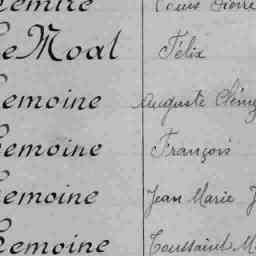 Lemire Louis Pierre
Le Moal Félix
Lemoine Auguste
Lemoine François
Lemoine Jean Marie J
Lemoine Toussaint M